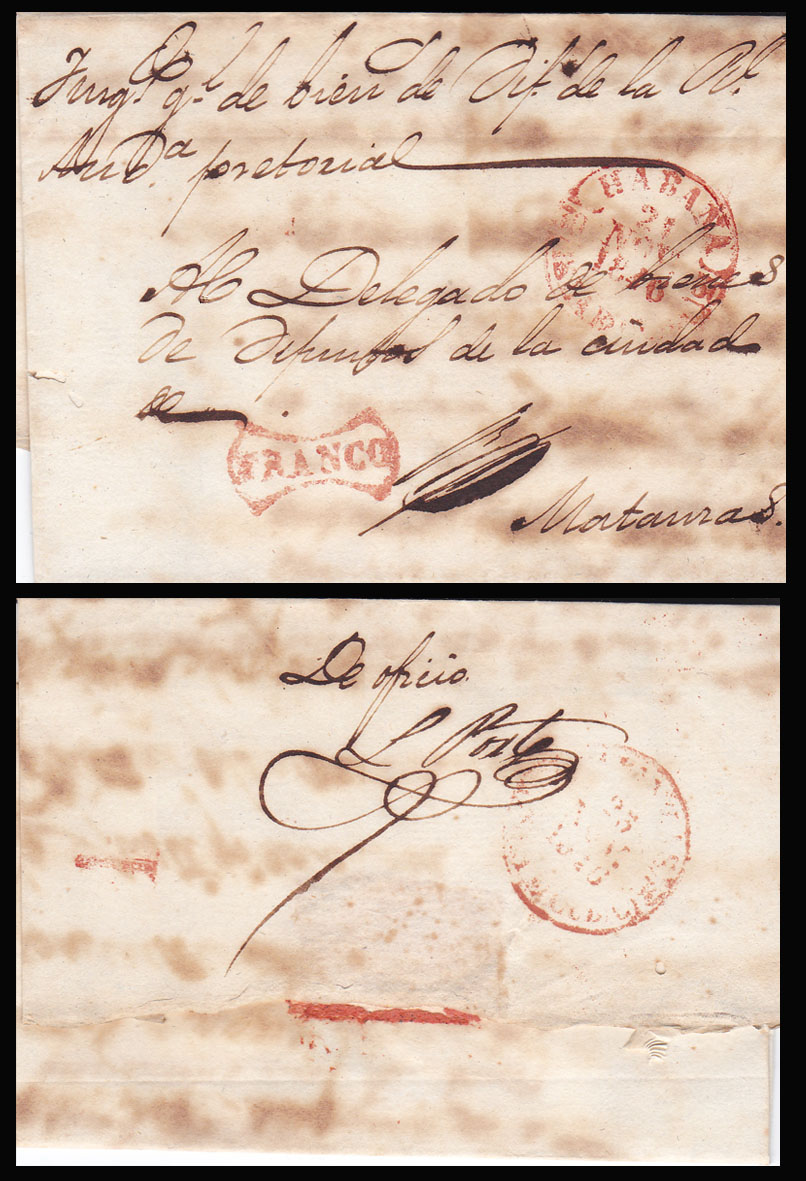 Juzg.º g.l de bien.s de Dif.s de la R.l
Aud.a pretorial
HABANA
21
NOV
1846
Al Delegado de bienes
de difuntos de la ciudad
de
FRANCO
Matanzas.
De oficio
L Porte
23